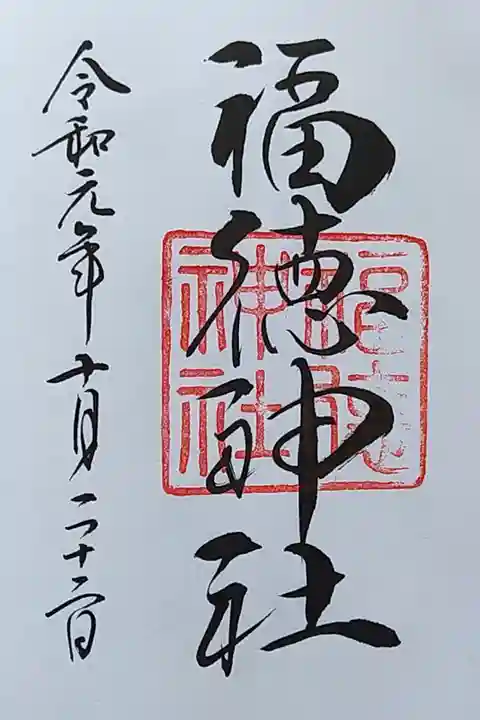 福徳神社
令和元年十月二十二日